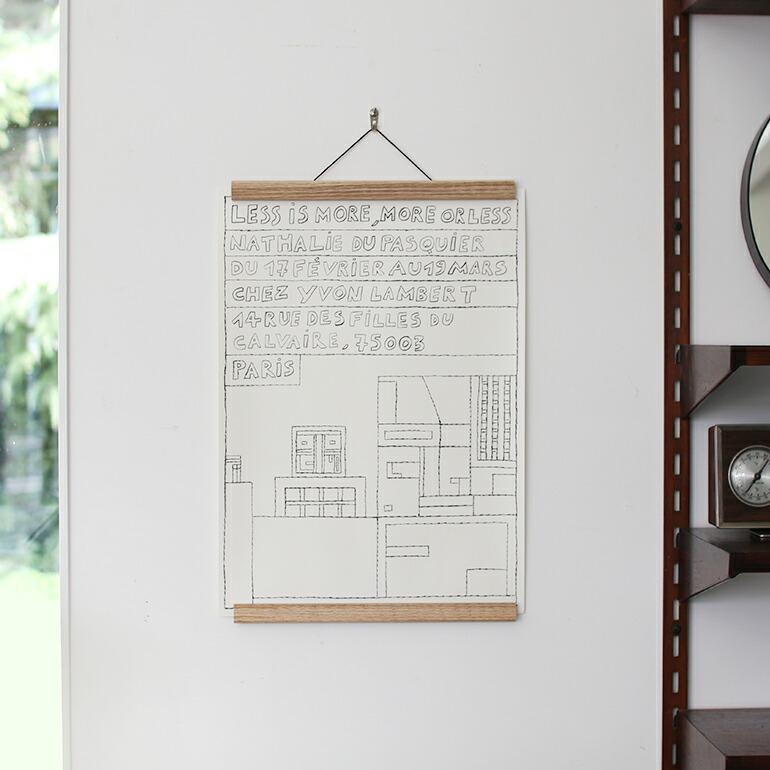 LESS iS MORE, MORE OR LESS
NATHALiE DU PASQUIER
DU 17 FÉVRIER AU 19 MARS
CHEZ YVON LAMBERT
14 RUE DES FiLLES DU
CALVAiRE, 75003
PARiS